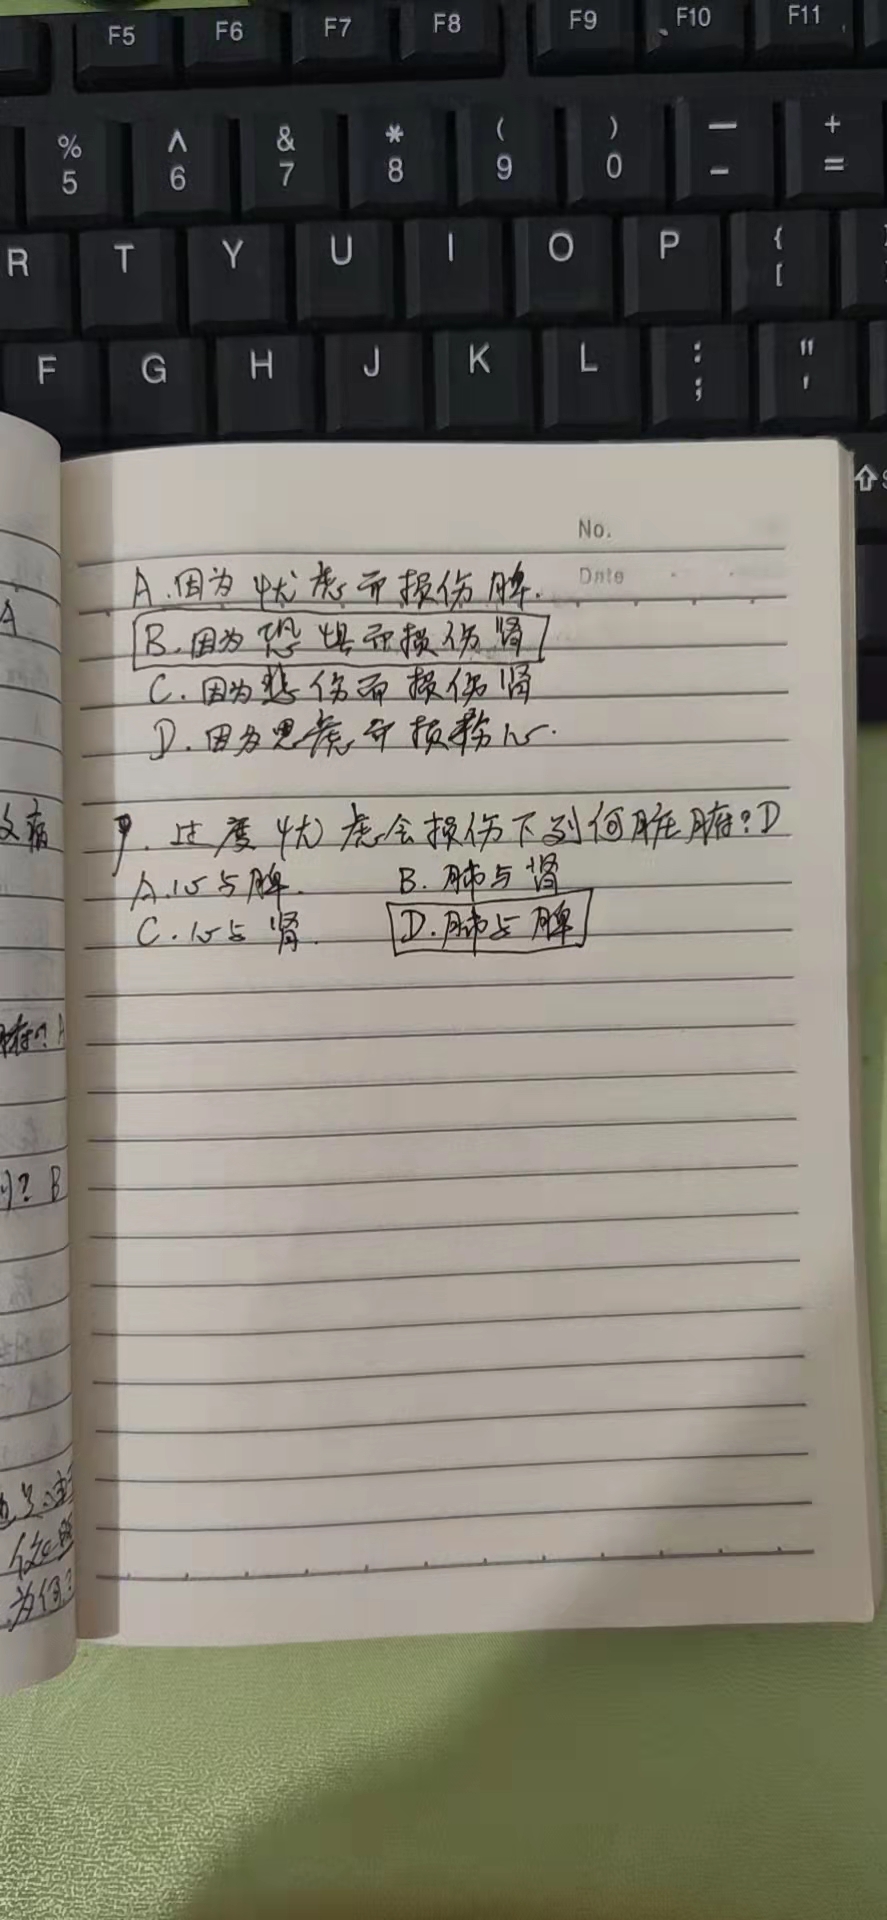 F5 F6 F7 F8 F9 F10 F11
% ^ & * ( ) — +
5 6 7 8 9 0 - =
R T Y U I O P { [
F G H J K L : ; " '
No.
Date
A.因为忧虑而损伤脾.
B.因为恐惧而损伤肾
C.因为悲伤而损伤肾
D.因为思虑而损伤心.
9.过度忧虑会损伤下列何脏腑?D
A.心与脾. B.肺与肾
C.心与肾. D.肺与脾
A
病
腑? A
? B
为何?